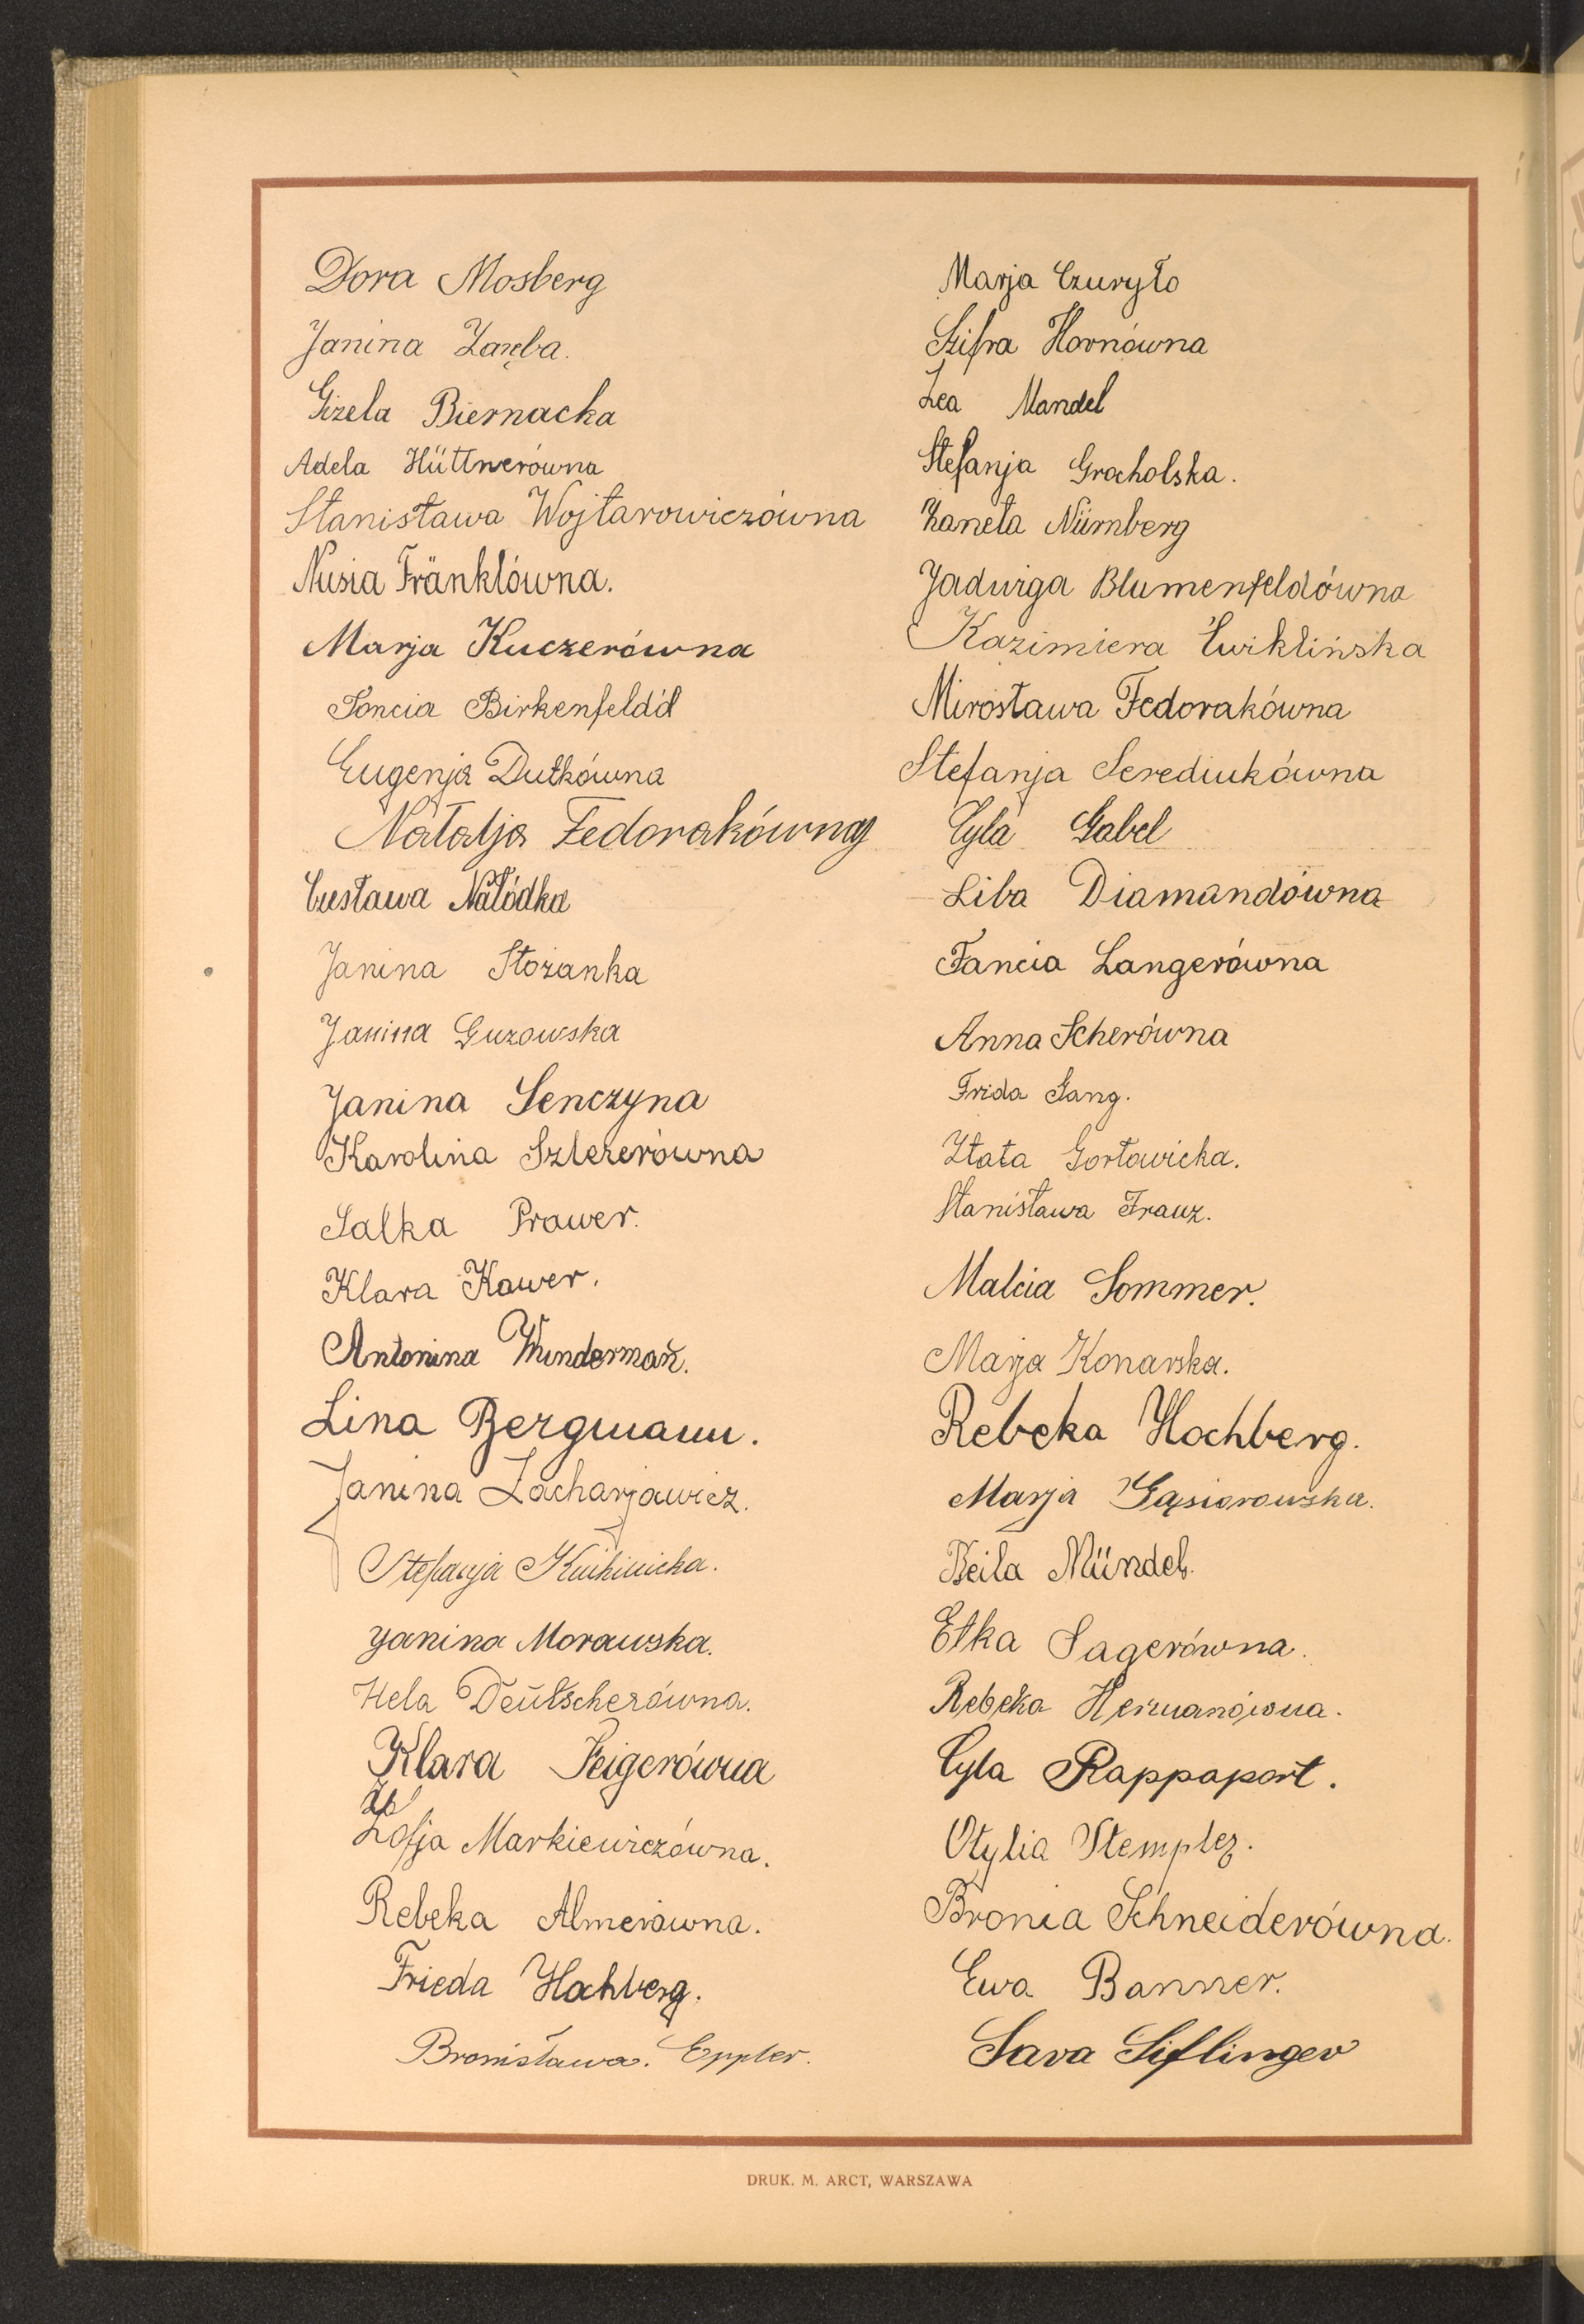 Dora Mosberg
Janina Zaręba.
Gizela Biernacka
Adela Hüttnerówna
Stanisława Wojtarowiczówna
Nusia Fränklówna.
Marja Kuczerówna
Toncia Birkenfeld
Eugenja Dutkówna
Natalja Fedorakówna
Czesława Nałódka
Janina Stożanka
Janina Guzowska
Janina Senczyna
Karolina Szlezerówna
Salka Prawer.
Klara Kawer.
Antonina Wunderman.
Lina Bergmann.
Janina Zacharjawicz.
Stefanja
Janina Morawska.
Hela Deutscherówna.
Klara Feigerówna
Zofja Markiewiczówna.
Rebeka Almerówna.
Frieda Hochberg.
Bronisława. Eppler.
Marja Czuryło
Szifra Hornówna
Lea Mandel
Stefanja Grocholska.
Żaneta Nürnberg
Jadwiga Blumenfeldówna
Kazimiera Ćwiklińska
Mirosława Fedorakówna
Stefanja Serediukówna
Cyla Gabel
Liba Diamandówna
Fancia Langerówna
Anna Scherówna
Frida Gang.
Złata Gortawicka.
Stanisława Franz.
Malcia Sommer.
Marja Konarska.
Rebeka Hochberg.
Marja Gąsiorowska.
Beila Mündel.
Etka Sagerówna.
Rebeka Hermanówna.
Cyla Rappaport.
Otylia Stempler.
Bronia Schneiderówna.
Ewa Banner.
Sara Siflinger
DRUK. M. ARCT, WARSZAWA